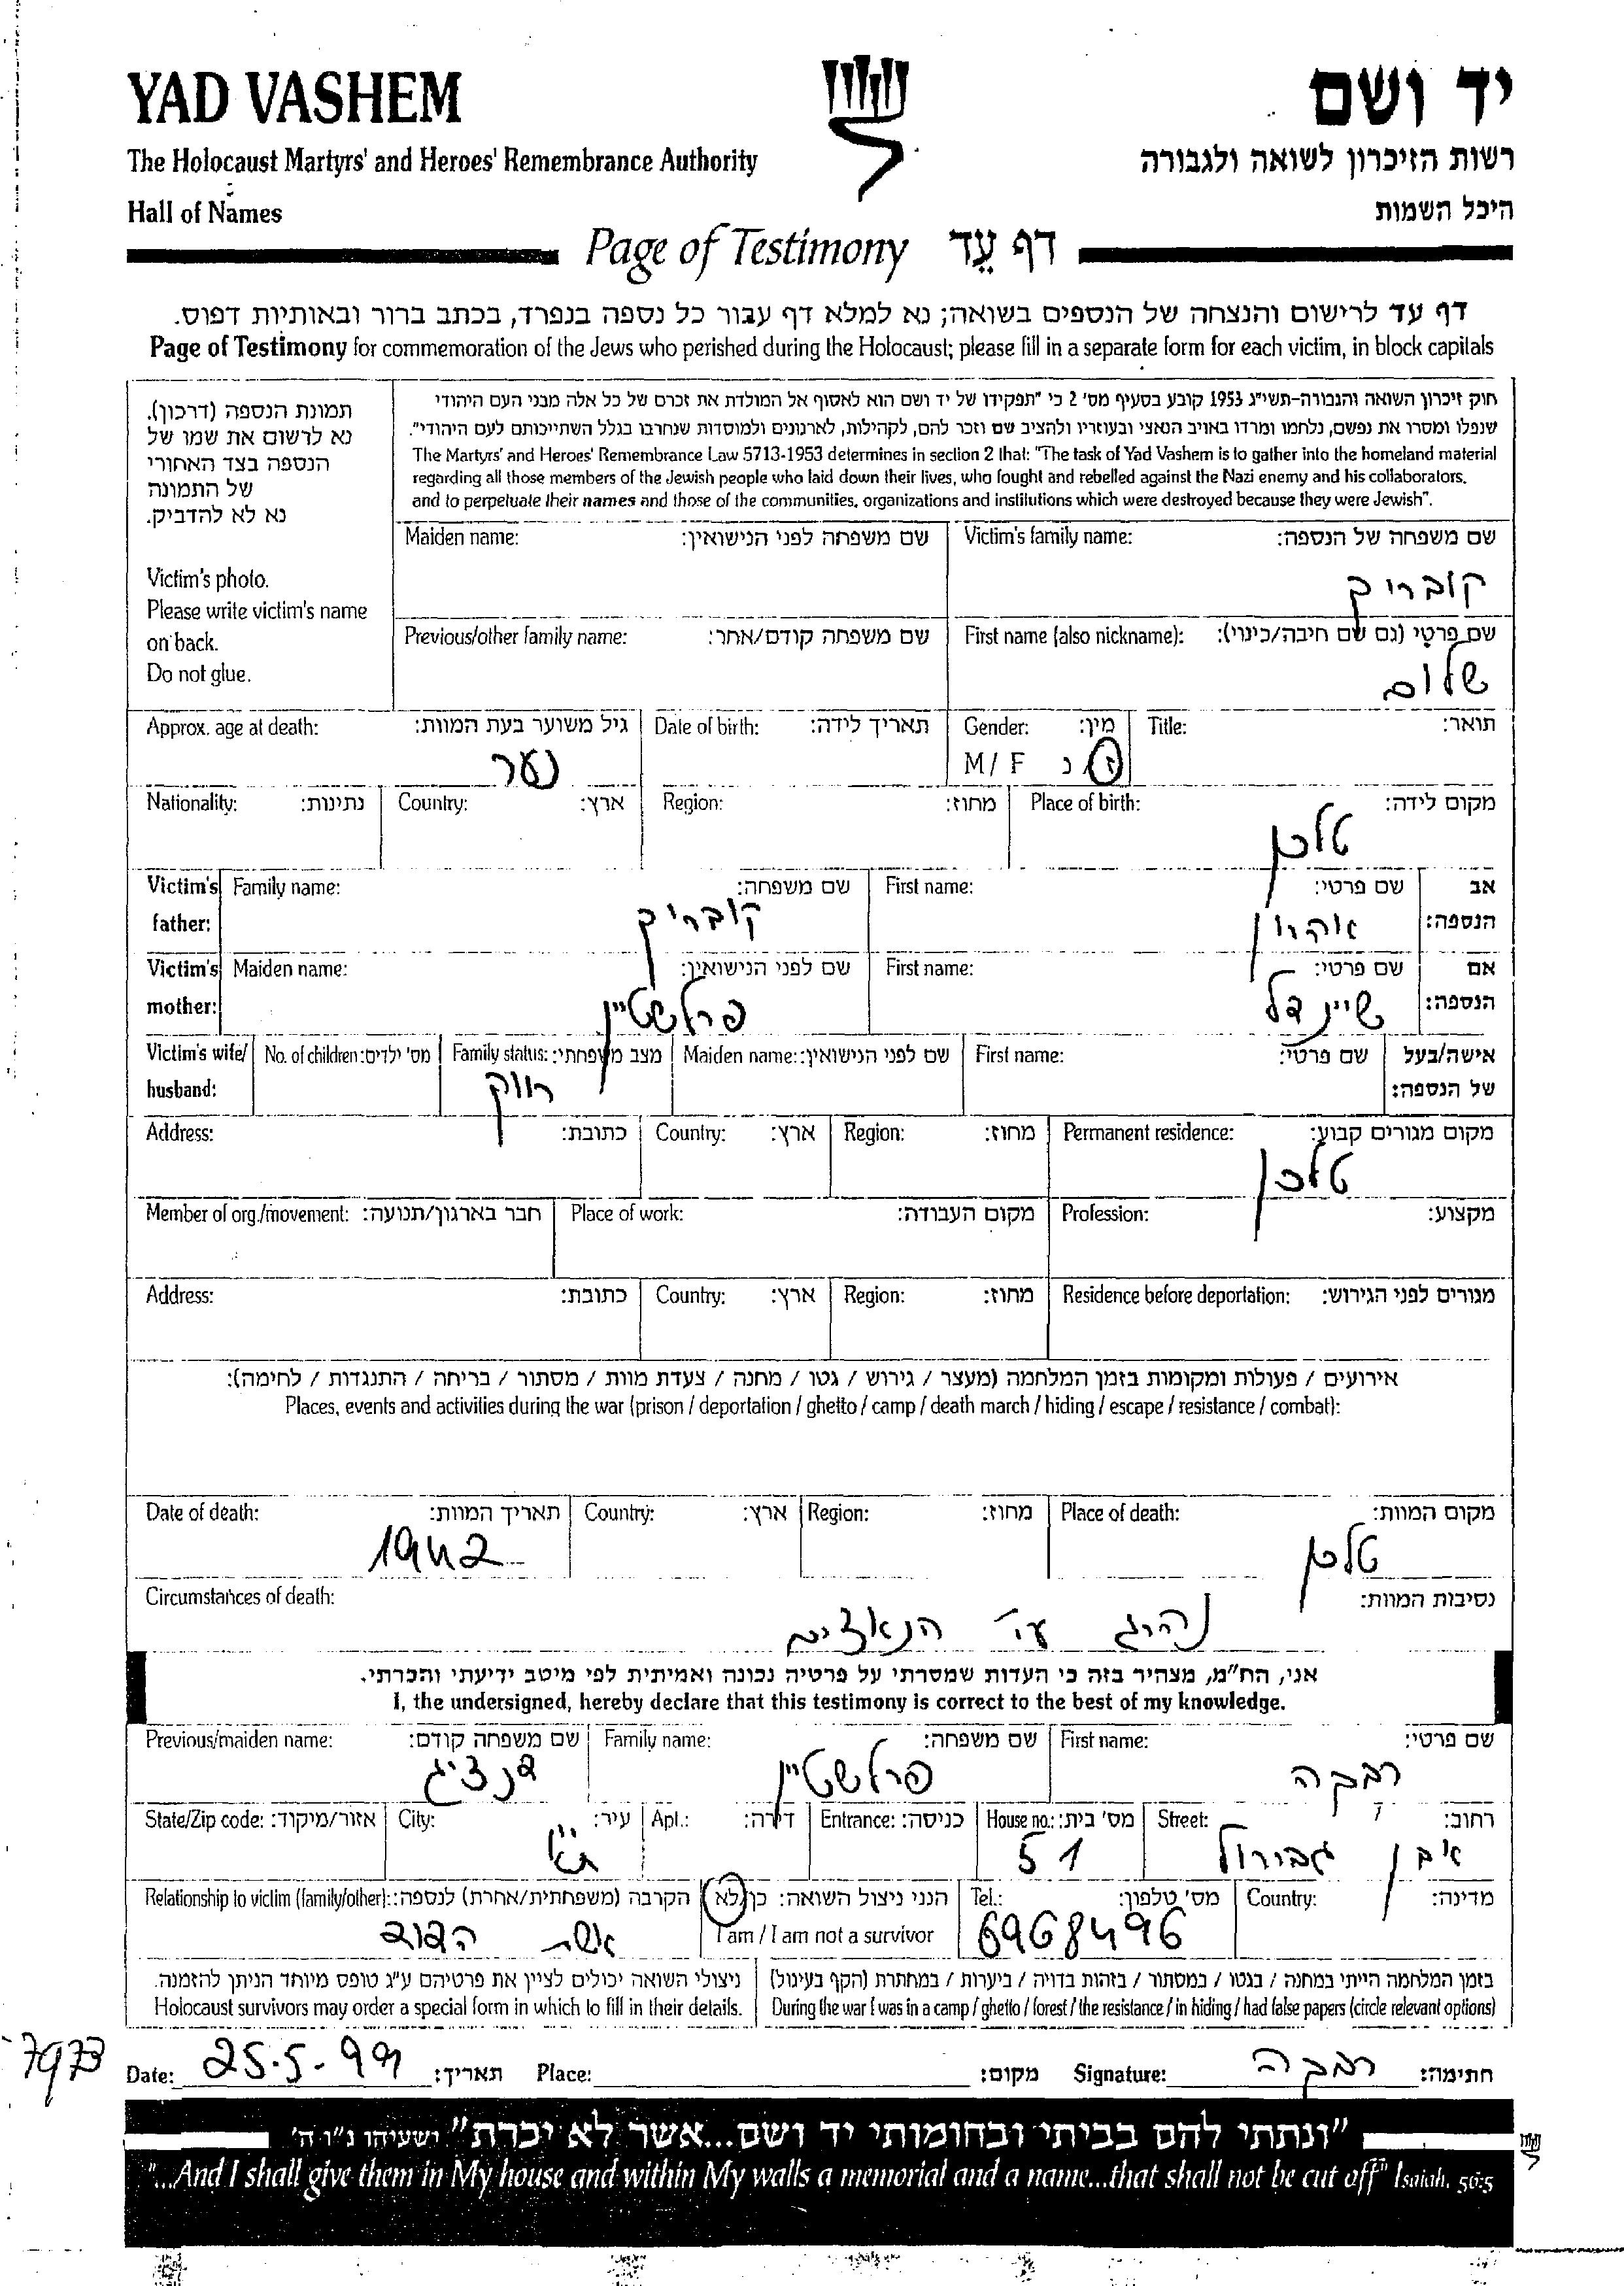 YAD VASHEM
יד ושם
The Holocaust Martyrs' and Heroes' Remembrance Authority
רשות הזיכרון לשואה ולגבורה
Hall of Names
היכל השמות
Page of Testimony דף עֵד
דף עד לרישום והנצחה של הנספים בשואה; נא למלא דף עבור כל נספה בנפרד, בכתב ברור ובאותיות דפוס.
Page of Testimony for commemoration of the Jews who perished during the Holocaust; please fill in a separate form for each victim, in block capitals
תמונת הנספה (דרכון).
נא לרשום את שמו של
הנספה בצד האחורי
של התמונה
נא לא להדביק.
Victim's photo.
Please write victim's name
on back.
Do not glue.
חוק זיכרון השואה והגבורה-תשי"ג 1953 קובע בסעיף מס' 2 כי "תפקידו של יד ושם הוא לאסוף אל המולדת את זכרם של כל אלה מבני העם היהודי
שנפלו ומסרו את נפשם, נלחמו ומרדו באויב הנאצי ובעוזריו ולהציב שם וזכר להם, לקהילות, לארגונים ולמוסדות שנחרבו בגלל השתייכותם לעם היהודי".
The Martyrs' and Heroes' Remembrance Law 5713-1953 determines in section 2 that: "The task of Yad Vashem is to gather into the homeland material
regarding all those members of the Jewish people who laid down their lives, who fought and rebelled against the Nazi enemy and his collaborators,
and to perpetuate their names and those of the communities, organizations and institutions which were destroyed because they were Jewish".
Maiden name: שם משפחה לפני הנישואין: Victim's family name: שם משפחה של הנספה:
קובריק
Previous/other family name: שם משפחה קודם/אחר: First name (also nickname): שם פרטי (גם שם חיבה/כינוי):
שלום
Approx. age at death: גיל משוער בעת המוות: Date of birth: תאריך לידה: Gender: מין: Title: תואר:
נער M/ F ז/נ
Nationality: נתינות: Country: ארץ: Region: מחוז: Place of birth: מקום לידה:
טלכן
Victim's Family name: שם משפחה: First name: שם פרטי: אב
father: קובריק אהרון הנספה:
Victim's Maiden name: שם לפני הנישואין: First name: שם פרטי: אם
mother: פרלשטיין שיינדל הנספה:
Victim's wife/ No. of children: מס' ילדים: Family status: מצב משפחתי: Maiden name: שם לפני הנישואין: First name: שם פרטי: אישה/בעל
husband: רווק של הנספה:
Address: כתובת: Country: ארץ: Region: מחוז: Permanent residence: מקום מגורים קבוע:
טלכן
Member of org./movement: חבר בארגון/תנועה: Place of work: מקום העבודה: Profession: מקצוע:
Address: כתובת: Country: ארץ: Region: מחוז: Residence before deportation: מגורים לפני הגירוש:
אירועים / פעולות ומקומות בזמן המלחמה (מעצר / גירוש / גטו / מחנה / צעדת מוות / מסתור / בריחה / התנגדות / לחימה):
Places, events and activities during the war (prison / deportation / ghetto / camp / death march / hiding / escape / resistance / combat):
Date of death: תאריך המוות: Country: ארץ: Region: מחוז: Place of death: מקום המוות:
1942 טלכן
Circumstances of death: נסיבות המוות:
נהרג ע"י הנאצים
אני, הח"מ, מצהיר בזה כי העדות שמסרתי על פרטיה נכונה ואמיתית לפי מיטב ידיעתי והכרתי.
I, the undersigned, hereby declare that this testimony is correct to the best of my knowledge.
Previous/maiden name: שם משפחה קודם: Family name: שם משפחה: First name: שם פרטי:
דנציג פרלשטיין רבקה
State/Zip code: אזור/מיקוד: City: עיר: Apt.: דירה: Entrance: כניסה: House no.: מס' בית: Street: רחוב:
ת"א 51 אבן גבירול
Relationship to victim (family/other): הקרבה (משפחתית/אחרת) לנספה: הנני ניצול השואה: כן/לא Tel.: מס' טלפון: Country: מדינה:
אשת הדוד I am / I am not a survivor 6968496
ניצולי השואה יכולים לציין את פרטיהם ע"ג טופס מיוחד הניתן להזמנה.
Holocaust survivors may order a special form in which to fill in their details.
בזמן המלחמה הייתי במחנה / בגטו / במסתור / בזהות בדויה / ביערות / במחתרת (הקף בעיגול)
During the war I was in a camp / ghetto / forest / the resistance / in hiding / had false papers (circle relevant options)
7973
Date: 25.5.99 תאריך: Place: מקום: Signature: רבקה חתימה:
"ונתתי להם בביתי ובחומותי יד ושם...אשר לא יכרת" ישעיהו נ"ו ה'
"...And I shall give them in My house and within My walls a memorial and a name...that shall not be cut off" Isaiah, 56:5